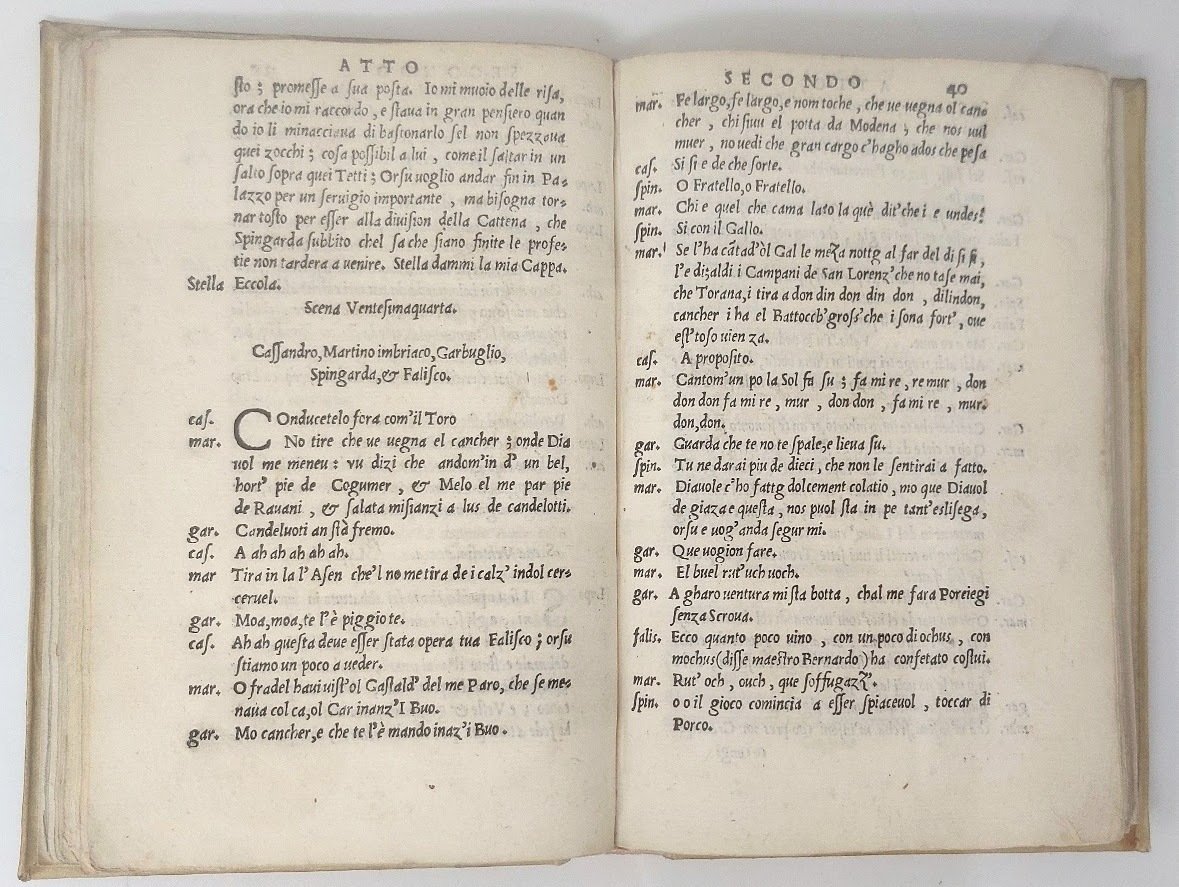 ATTO
sto; promesse a sua posta. Io mi muoio delle risa,
ora che io mi raccordo, e staua in gran pensiero quan
do io li minacciaua di bastonarlo sel non spezzaua
quei zocchi; cosa possibil a lui, come il saltar in un
salto sopra quei Tetti; Orsu uoglio andar fin in Pa-
lazzo per un seruigio importante, ma bisogna tor-
nar tosto per esser alla diuision della Cattena, che
Spingarda subbito chel sa che siano finite le profe-
tie non tardera a uenire. Stella dammi la mia Cappa.
Stella Eccola.
Scena Ventesimaquarta.
Cassandro, Martino imbriaco, Garbuglio,
Spingarda, & Falisco.
cas. COnducetelo fora com'il Toro
mar. No tire che ue uegna el cancher; onde Dia
uol me meneu: vu dizi che andom'in d' un bel,
hort' pie de Cogumer, & Melo el me par pie
de Rauani, & salata misianzi a lus de candelotti.
gar. Candeluoti an stà fremo.
cas. A ah ah ah ah ah.
mar Tira in la l'Asen che'l no me tira de i calz' indol cer-
ceruel.
gar. Moa, moa, te l'è piggiote.
cas. Ah ah questa deue esser stata opera tua Falisco; orsu
stiamo un poco a ueder.
mar. O fradel haui uist'ol Gastald' del me Paro, che se me-
naua col ca, ol Car inanz'I Buo.
gar. Mo cancher, e che te l'è mando inaz'i Buo.
SECONDO 40
mar. Fe largo, fe largo, e nom toche, che ue uegna ol can-
cher, chi siuu el potta da Modena; che nos uul
muer, no uedi che gran cargo c'hagho ados che pesa
cas. Si si e de che sorte.
spin. O Fratello, o Fratello.
mar. Chi e quel che cama lato la què dit'che i e undes?
spin. Si con il Gallo.
mar. Se l'ha cãtad'òl Gal le meza nottg al far del di si si,
l'e dizaldi i Campani de San Lorenz'che no tase mai,
che Torana, i tira a don din don din don, dilindon,
cancher i ha el Battoccb'gross'che i sona fort', oue
est'toso uien za.
cas. A proposito.
mar. Cantom'un po la Sol fa su; fa mi re, re mur, don
don don fa mi re, mur, don don, fa mi re, mur.
don, don.
gar. Guarda che te no te spale, e lieua su.
spin. Tu ne darai piu de dieci, che non le sentirai a fatto.
mar. Diauole c'ho fattg dolcement colatio, mo que Diauol
de giaza e questa, nos puol sta in pe tant'eslisega,
orsu e uog'anda segur mi.
gar. Que uogion fare.
mar. El buel rut'uch uoch.
gar. A gharo uentura mi sta botta, chal me fara Poreiegi
senza Scroua.
falis. Ecco quanto poco uino, con un poco di ochus, con
mochus (disse maestro Bernardo) ha confetato costui.
mar. Rut' och, ouch, que soffugaz'.
spin. o o il gioco comincia a esser spiaceuol, toccar di
Porco.